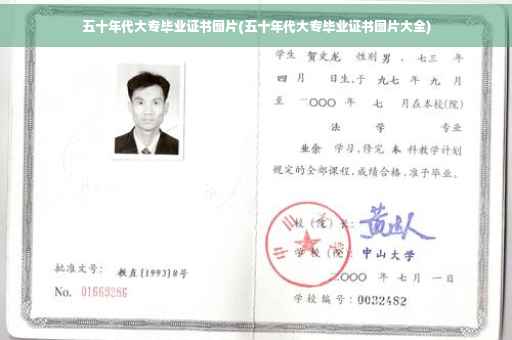 五十年代大专毕业证书图片(五十年代大专毕业证书图片大全)
学生 贺文龙 性别 男 、七三 年
四 月 日生,于 九七 年 九 月
至 二〇〇〇 年 七 月在本校(院)
法 学 专业
业余 学习,修完 本 科教学计划
规定的全部课程,成绩合格,准予毕业。
校(院)长:
学校(院): 中山大学
二〇〇〇 年 七 月 一 日
学校编号: 0032482
批准文号: 教直[1993]8号
No. 01669286